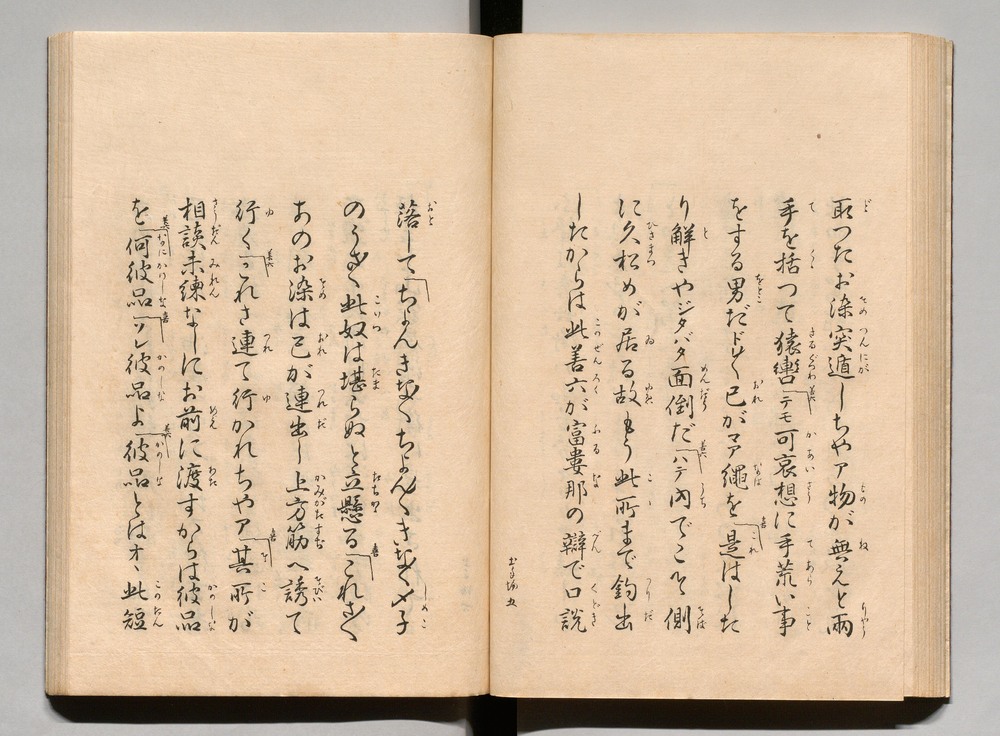 取つたお染突遁しちやア物が無えと両
手を括つて猿轡「テモ可哀想に手荒い事
をする男だドリヤ己がマア縄を「是はした
り解きやジタバタ面倒だ「ハテ内でこそ側
に久松めが居る故もう此所まで釣出
したからは此善六が富婁那の辯で口説
落して「ちよんきな〱ちよん〱きな〱〆子
のうさ〱此奴は堪らぬと立懸る「これさ〱
あのお染は己が連出し上方筋へ誘て
行く「これさ連て行かれちやア「其所が
相談未練なしにお前に渡すからは彼品
を「何彼品「ソレ彼品よ「彼品とはオヽ此短